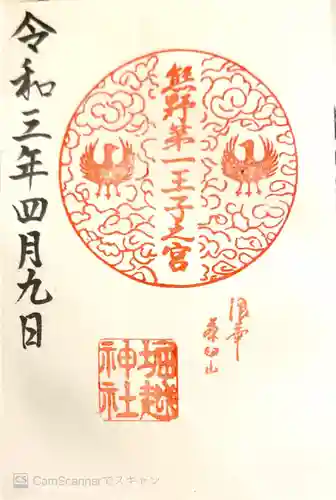 令和三年四月九日
熊野第一王子之宮
堀越神社
CS CamScannerでスキャン